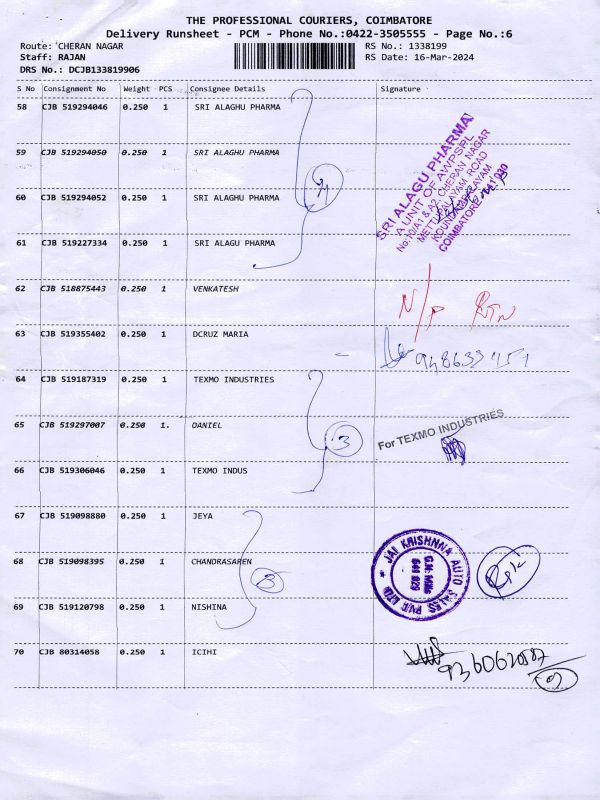 THE PROFESSIONAL COURIERS, COIMBATORE
Delivery Runsheet - PCM - Phone No.:0422-3505555 - Page No.:6
Route: CHERAN NAGAR RS No.: 1338199
Staff: RAJAN RS Date: 16-Mar-2024
DRS No.: DCJB133819906
S No Consignment No Weight PCS Consignee Details Signature
58 CJB 519294046 0.250 1 SRI ALAGHU PHARMA
59 CJB 519294050 0.250 1 SRI ALAGHU PHARMA
60 CJB 519294052 0.250 1 SRI ALAGHU PHARMA
61 CJB 519227334 0.250 1 SRI ALAGU PHARMA
SRI ALAGU PHARMA
A UNIT OF AWPSPL
No:10/A1 & A2, CHERAN NAGAR
METTUPALAYAM ROAD
KOUNDAMPALAYAM
COIMBATORE-641 030
62 CJB 518875443 0.250 1 VENKATESH N/P RTN
63 CJB 519355402 0.250 1 DCRUZ MARIA
64 CJB 519187319 0.250 1 TEXMO INDUSTRIES
65 CJB 519297007 0.250 1. DANIEL 3 For TEXMO INDUSTRIES
66 CJB 519306046 0.250 1 TEXMO INDUS
67 CJB 519098880 0.250 1 JEYA
68 CJB 519098395 0.250 1 CHANDRASAREN
JAI KRISHNNA AUTO SALES PVT LTD
G.N. Mills
641 029
69 CJB 519120798 0.250 1 NISHINA
70 CJB 80314058 0.250 1 ICIHI